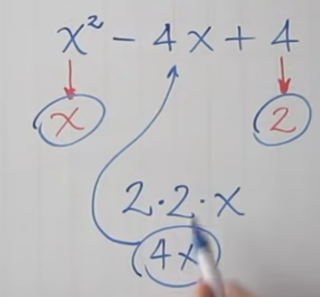 x² - 4x + 4
x 2
2·2·x
4x